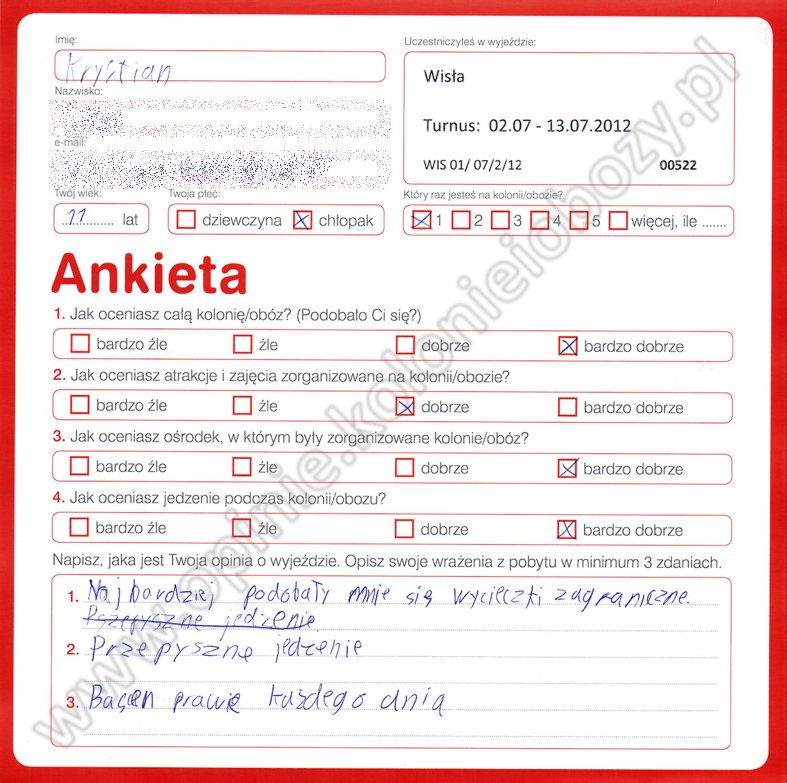 Imię:
Krystian
Uczestniczyłeś w wyjeździe:
Wisła
Turnus: 02.07 - 13.07.2012
WIS 01/ 07/2/12 00522
Nazwisko:
e-mail:
Twój wiek:
11 lat
Twoja płeć:
dziewczyna chłopak
Który raz jesteś na kolonii/obozie?
1 2 3 4 5 więcej, ile .......
Ankieta
1. Jak oceniasz całą kolonię/obóz? (Podobało Ci się?)
bardzo źle źle dobrze bardzo dobrze
2. Jak oceniasz atrakcje i zajęcia zorganizowane na kolonii/obozie?
bardzo źle źle dobrze bardzo dobrze
3. Jak oceniasz ośrodek, w którym były zorganizowane kolonie/obóz?
bardzo źle źle dobrze bardzo dobrze
4. Jak oceniasz jedzenie podczas kolonii/obozu?
bardzo źle źle dobrze bardzo dobrze
Napisz, jaka jest Twoja opinia o wyjeździe. Opisz swoje wrażenia z pobytu w minimum 3 zdaniach.
1. Najbardziej podobały mnie się wycieczki zagraniczne.
Przepyszne jedzenie
2. Przepyszne jedzenie
3. Basen prawie każdego dnia
www.opinie.kolonieiobozy.pl